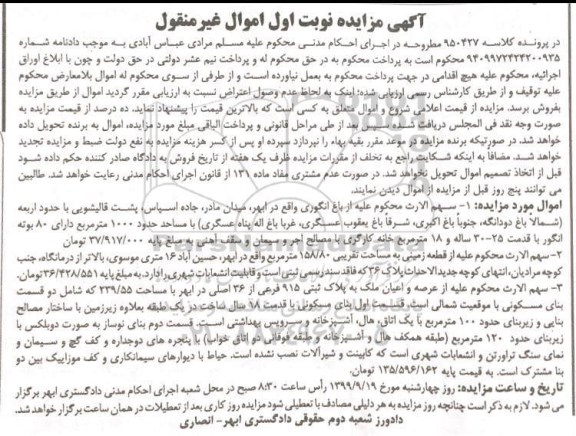 آگهی مزایده نوبت اول اموال غیرمنقول
در پرونده کلاسه ۹۵۰۴۲۷ مطروحه در اجرای احکام مدنی محکوم علیه مسلم مرادی عباس آبادی به موجب دادنامه شماره
۹۴۰۹۹۷۲۴۲۴۲۰۰۹۲۵ محکوم است به پرداخت محکوم به در حق محکوم له و پرداخت نیم عشر دولتی در حق دولت و چون با ابلاغ اوراق
اجرائیه، محکوم علیه هیچ اقدامی در جهت پرداخت محکوم به بعمل نیاورده است و از طرفی از سوی محکوم له اموال بلامعارض محکوم
علیه توقیف و از طریق کارشناس رسمی ارزیابی شده؛ اینک به لحاظ عدم وصول اعتراض نسبت به ارزیابی مقرر گردید اموال از طریق مزایده
بفروش برسد. مزایده از قیمت اعلامی شروع و اموال متعلق به کسی است که بالاترین قیمت را پیشنهاد نماید. ده درصد از قیمت مزایده به
صورت وجه نقد فی المجلس دریافت بعد از طی مراحل قانونی و پرداخت الباقی مبلغ مورد مزایده، اموال به برنده تحویل داده
خواهد شد. در صورتیکه برنده مزایده در موعد مقرر بقیه بهاء را نپردازد سپرده او پس از کسر هزینه مزایده به نفع دولت ضبط و مزایده تجدید
خواهد شد. مضافا به اینکه شکایت راجع به تخلف از مقررات مزایده ظرف یک هفته از تاریخ فروش به دادگاه صادر کننده حکم داده شود
قبل از اتخاذ تصمیم اموال تحویل نخواهد شد. در صورت عدم مشتری مفاد ماده ۱۳۱ از قانون اجرای احکام مدنی رعایت خواهد شد. طالبین
می توانند پنج روز قبل از مزایده از اموال دیدن نمایند.
اموال مورد مزایده: ۱- سهم الارث محکوم علیه از باغ انگوری واقع در ابهر، میدان مادر، جاده اسپاس، پشت قالیشویی با حدود اربعه
(شمالاً باغ دودانگه، جنوباً باغ اکبری، شرقاً باغ یعقوب عسگری، غربا باغ اله پناه عسگری) با مساحد حدود ۱۰۰۰ مترمربع دارای ۸۰ بوته
انگور با قدمت ۲۵-۳۰ ساله و ۱۸ مترمربع خانه کارگری با مصالح آجر و سیمان و سقف آهنی به مبلغ پایه ۳۷/۹۱۷/۰۰۰ تومان
۲- سهم الارث محکوم علیه از قطعه زمینی به مساحت تقریبی ۱۵۸/۸۰ مترمربع واقع در ابهر، حسین آباد ۱۶ متری موسوی، بالاتر از درمانگاه، جنب
کوچه مرادیان، انتهای کوچه جدیدالاحداث پلاک ۳۶ که فاقد سند رسمی ثبتی است و قابلیت انشعابات شهری را دارد. به مبلغ پایه ۳۶/۴۲۸/۵۵۱ تومان.
۳- سهم الارث محکوم علیه از عرصه و اعیان ملک به پلاک ثبتی ۹۱۵ فرعی از ۳۶ اصلی در ابهر با مساحت ۲۳۹/۵۵ که شامل دو قسمت
بنای مسکونی با موقعیت شمالی است قسمت اول بنای مسکونی با قدمت ۱۸ سال ساخت در یک طبقه بعلاوه زیرزمین با ساختار مصالح
بنایی و زیربنای حدود ۱۰۰ مترمربع با یک اتاق، هال، آشپزخانه و سرویس بهداشتی است. قسمت دوم بنای نوساز به صورت دوبلکس با
زیربنای حدود ۱۲۰ مترمربع (طبقه همکف هال و آشپزخانه و طبقه فوقانی دو اتاق خواب) با پنجره های دوجداره و کف گچ و سیمان و
نمای سنگ تراورتن و انشعابات شهری است که کابینت و شیرآلات نصب نشده است. حیاط با دیوارهای سیمانکاری و کف موزاییک بین دو
بنا مشترک است. به قیمت پایه ۱۳۵/۵۹۶/۱۶۲ تومان.
تاریخ و ساعت مزایده: روز چهارشنبه مورخ ۱۳۹۹/۹/۱۹ رأس ساعت ۸:۳۰ صبح در محل شعبه اجرای احکام مدنی دادگستری ابهر برگزار
می شود. لازم به ذکر است چنانچه روز مزایده به هر دلیلی مصادف با تعطیلی شود مزایده روز کاری بعد از تعطیلات در همان ساعت برگزار خواهد شد.
دادورز شعبه دوم حقوقی دادگستری ابهر- انصاری